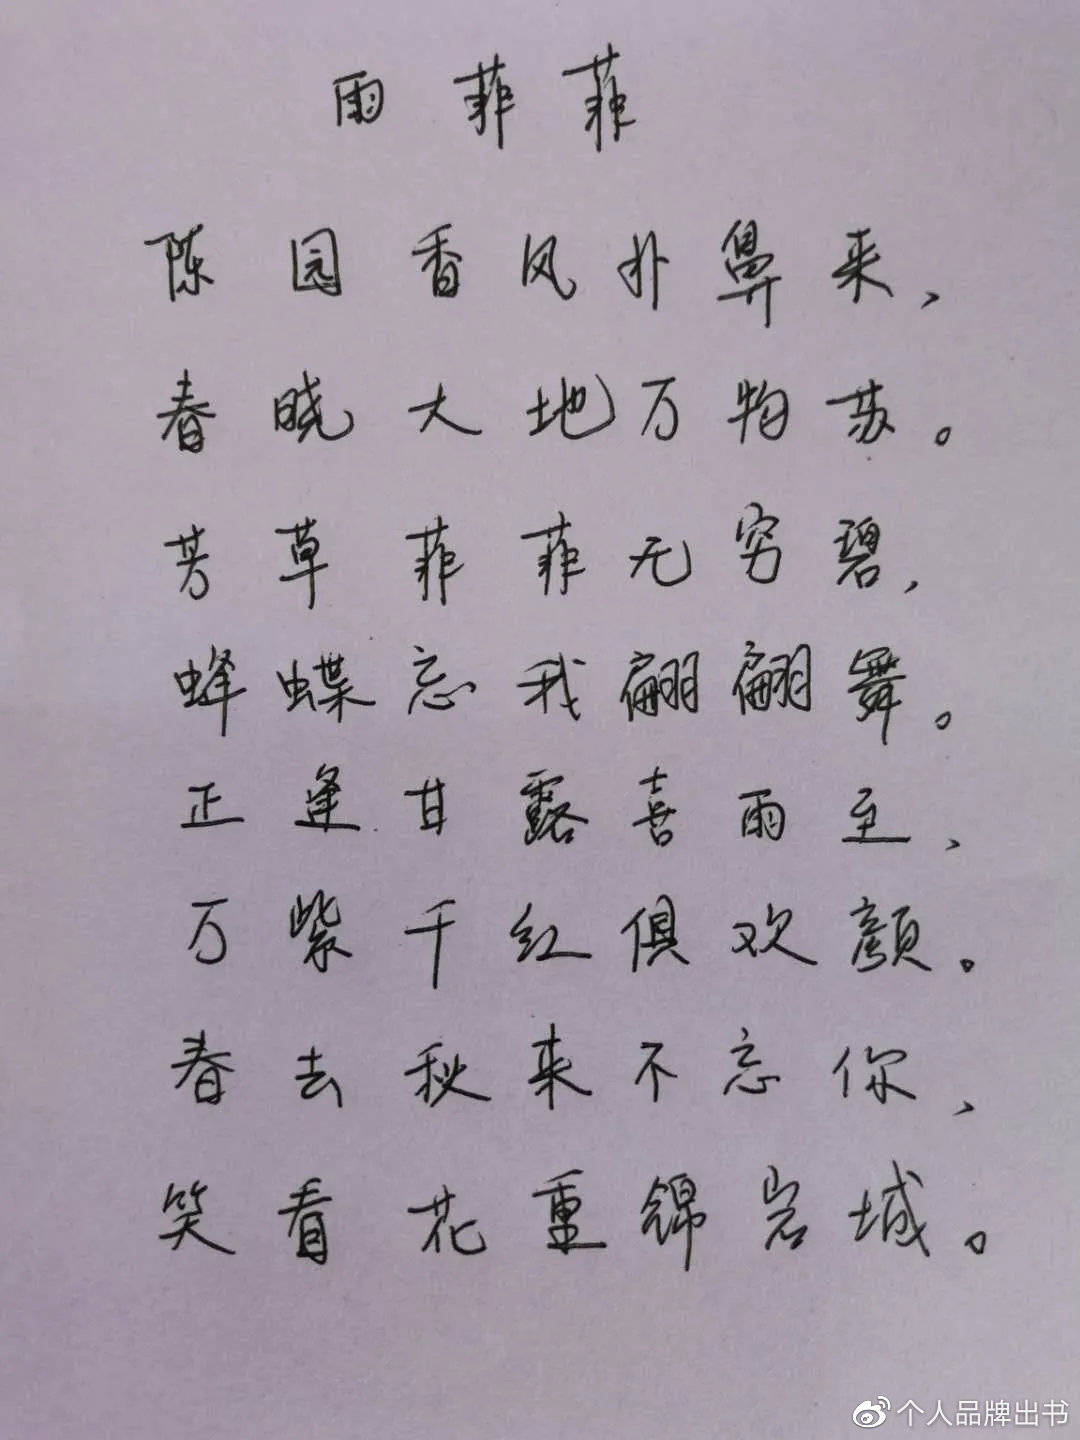 雨菲菲
陈园香风扑鼻来、
春晓大地万物苏。
芳草菲菲无穷碧,
蜂蝶忘我翩翩舞。
正逢甘露喜雨至、
万紫千红俱欢颜。
春去秋来不忘你、
笑看花重锦岩城。
个人品牌出书